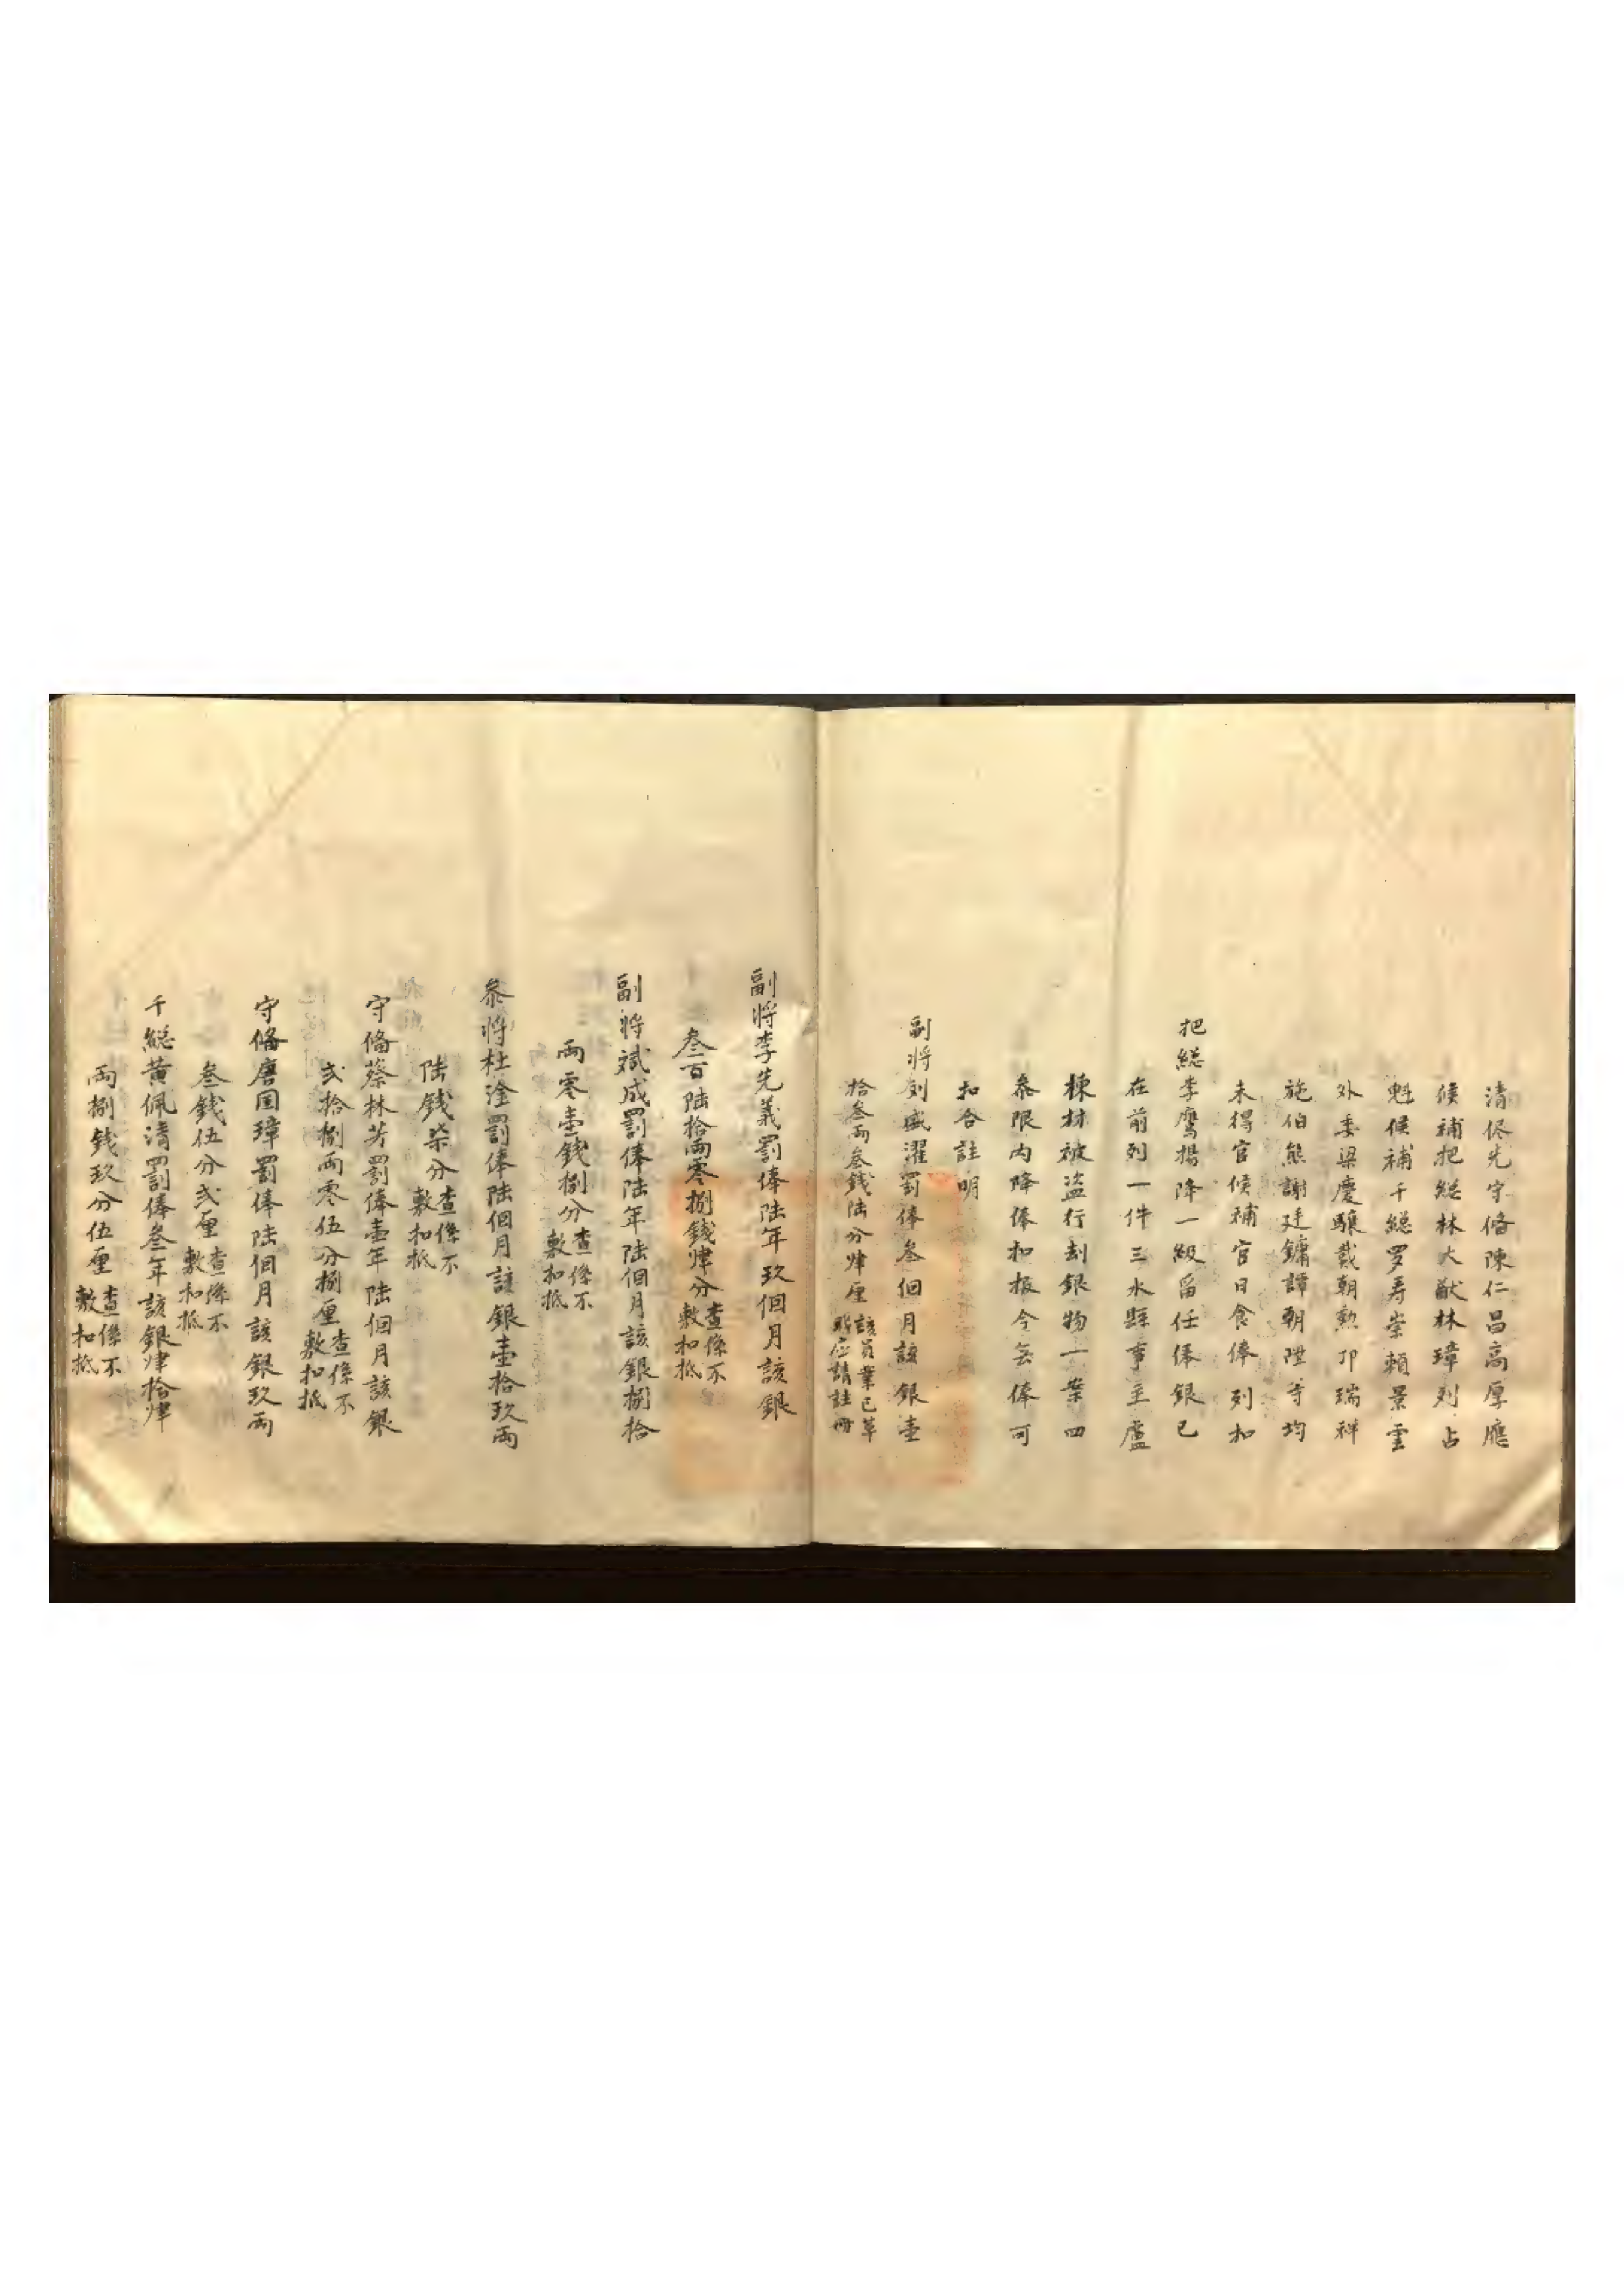 清佟先守俻陳仁昌高厚應
候補把緫林大猷林璋列占
魁候補千緫罗寿崇賴景雲
外委梁慶驤戴朝勲邝瑞祥
施伯熊謝廷鏞譚朝陞等均
未得官候補官日食俸列扣
把緫李鷹揚降一級畄任俸銀已
在前列一件三水縣事主盧
棟材被盗行刦銀物一案四
叅限内降俸扣報今无俸可
扣合註明
副将刘盛濯罰俸叁個月該銀壹
拾叁両叁銭陸分肆厘
該員業已革
職应請註冊
副将李先義罰俸陸年玖個月該銀
叁百陸拾両零捌錢肆分
查係不
敷扣抵
副将斌成罰俸陸年陸個月該銀捌拾
両零壹錢捌分
查係不
敷扣抵
叅将杜淦罰俸陸個月該銀壹拾玖両
陸錢柒分
查係不
敷扣抵
守俻蔡林芳罰俸壹年陸個月該銀
弍拾捌両零伍分捌厘
查係不
敷扣抵
守俻唐国璋罰俸陸個月該銀玖両
叁錢伍分弍厘
查係不
敷扣抵
千緫黄佩清罰俸叁年該銀肆拾肆
両捌銭玖分伍厘
查係不
敷扣抵